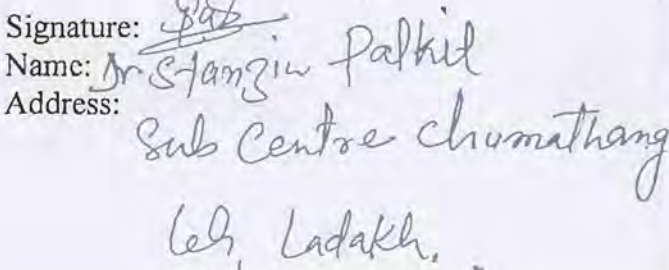 Signature:
Name: Dr Stanzin Palkit
Address:
Sub Centre Chumathang
Leh, Ladakh.